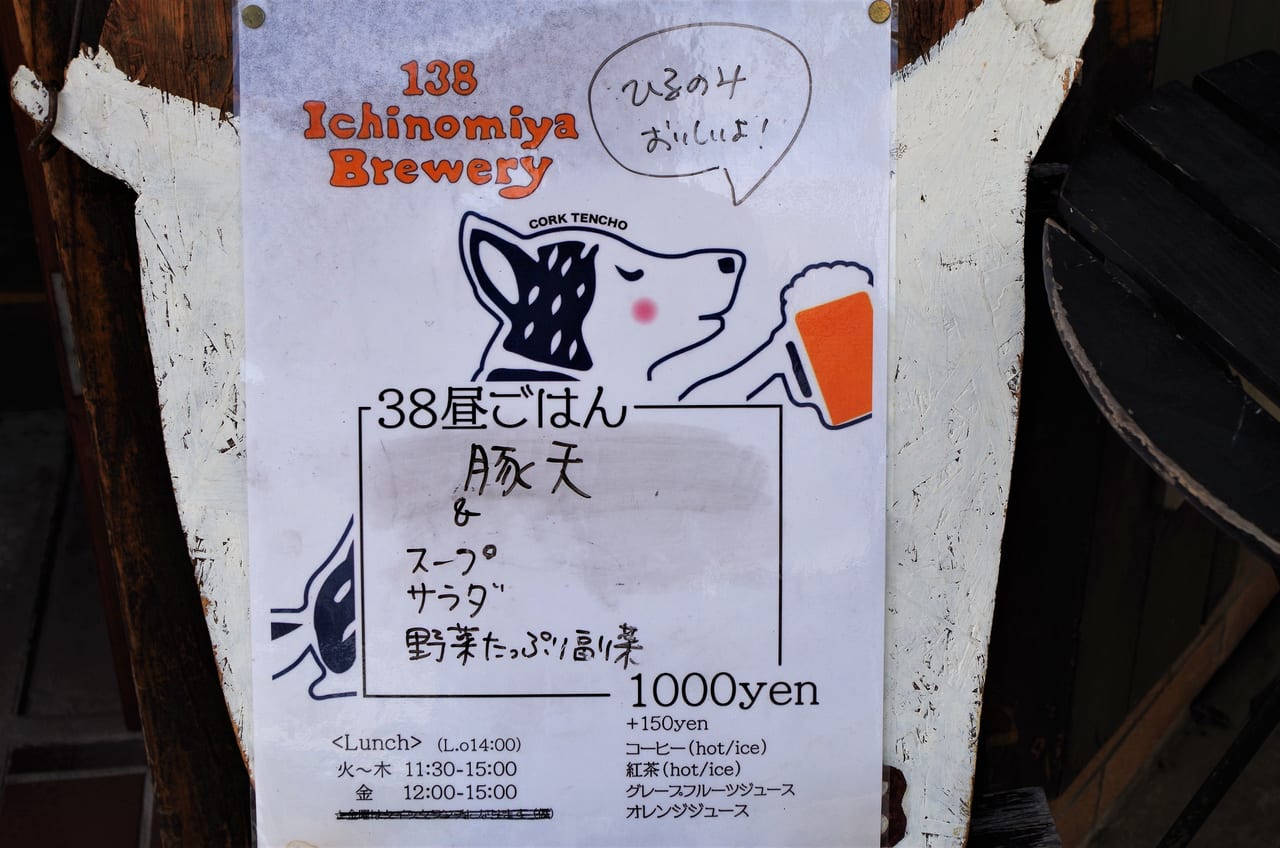 138
Ichinomiya
Brewery
ひるのみ
おいしいよ!
CORK TENCHO
38昼ごはん
豚天
&
スープ
サラダ
野菜たっぷり副菜
1000yen
+150yen
<Lunch> (L.o14:00)
火～木 11:30-15:00
金 12:00-15:00
コーヒー(hot/ice)
紅茶(hot/ice)
グレープフルーツジュース
オレンジジュース